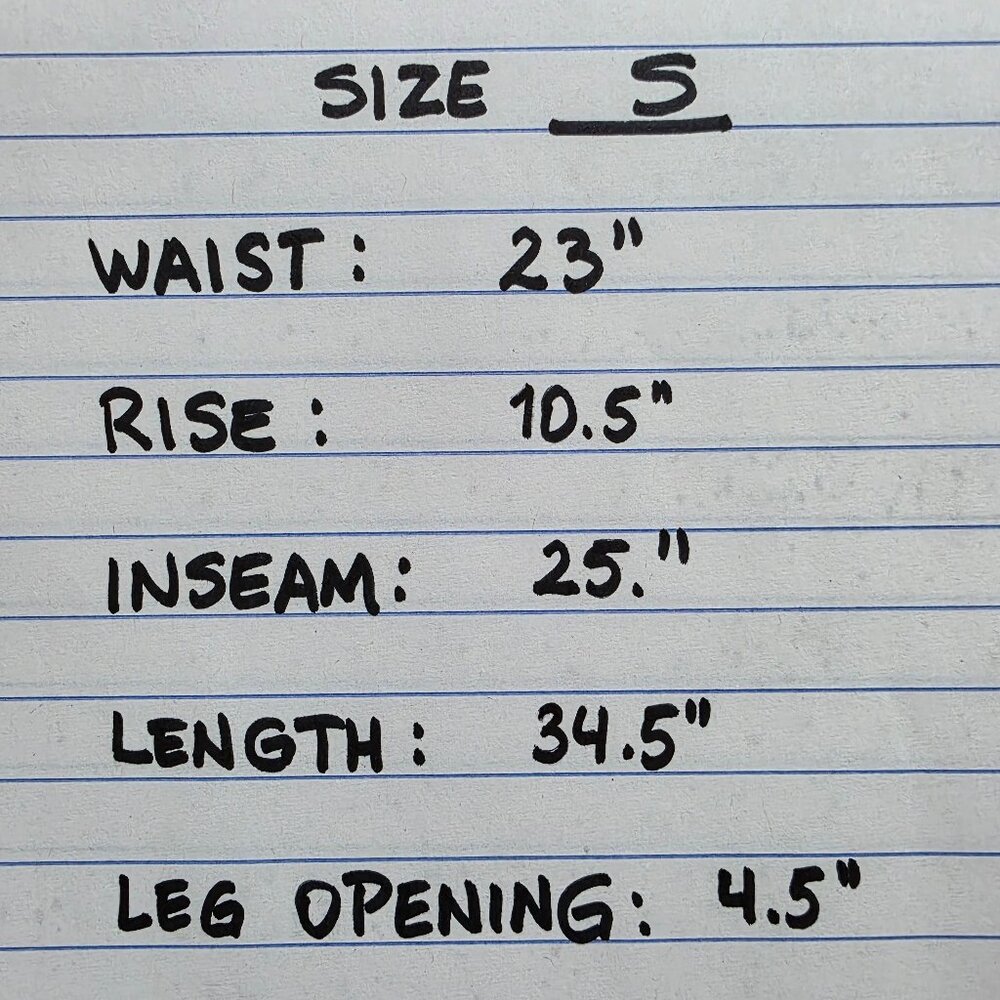 SIZE S
WAIST: 23"
RISE: 10.5"
INSEAM: 25."
LENGTH: 34.5"
LEG OPENING: 4.5"